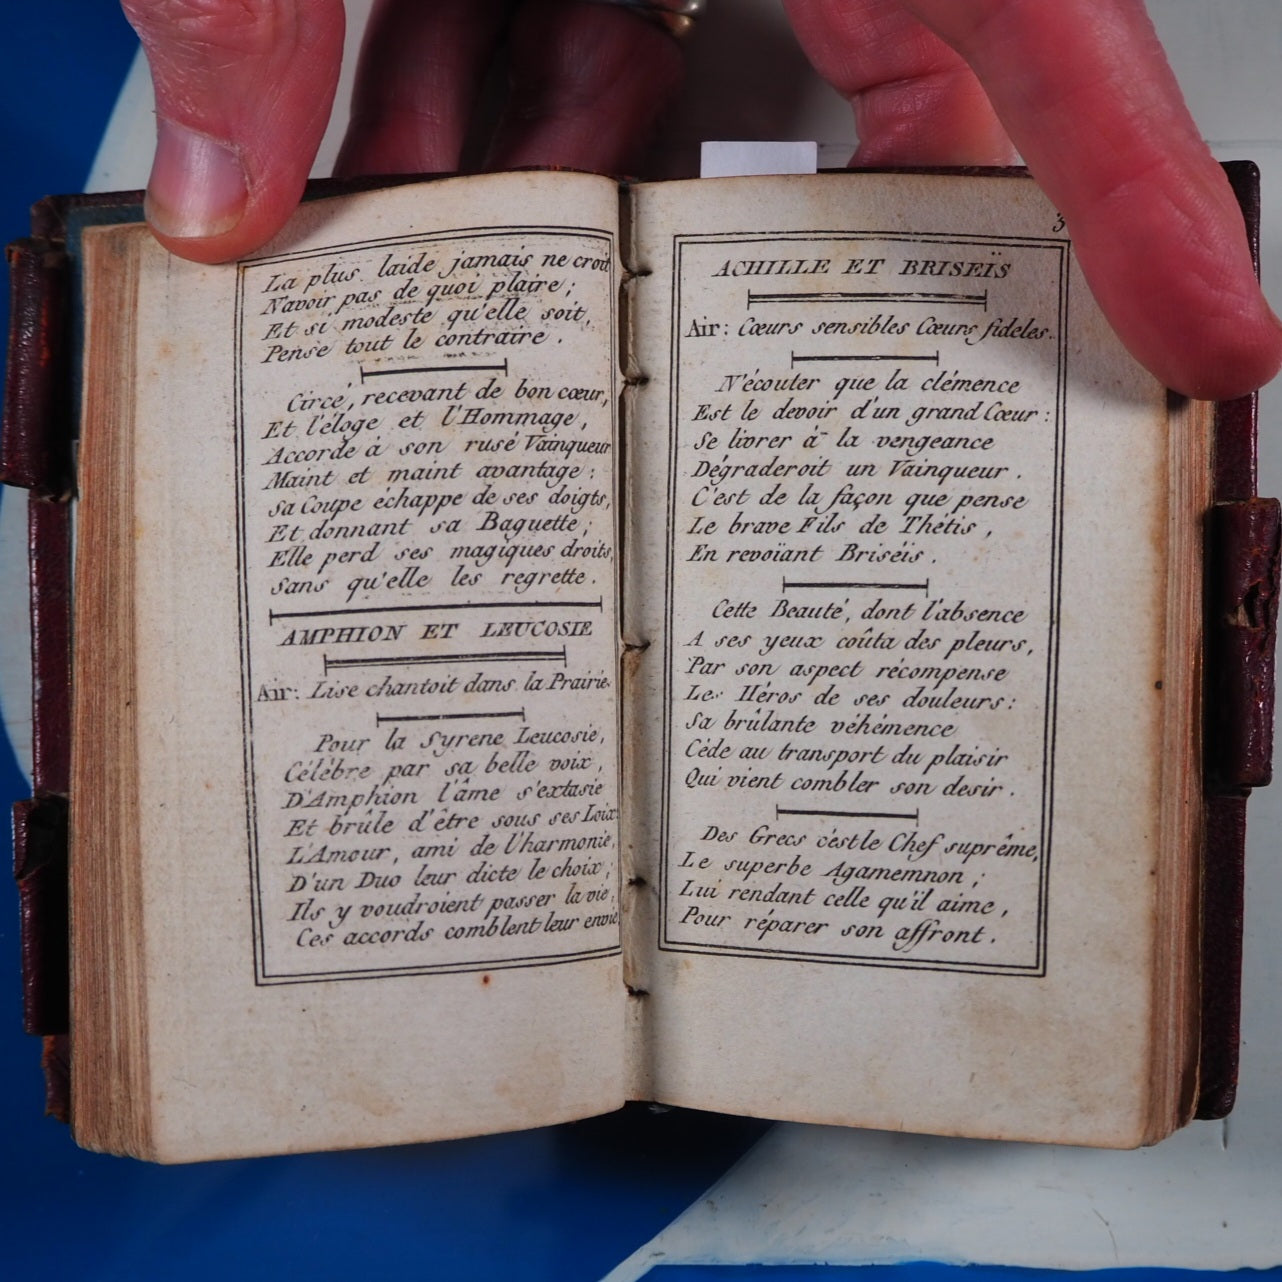 La plus laide jamais ne croit
N'avoir pas de quoi plaire ;
Et si modeste qu'elle soit,
Pense tout le contraire .
Circé, recevant de bon cœur,
Et l'éloge et l'Hommage,
Accorde à son rusé Vainqueur
Maint et maint avantage :
Sa Coupe échappe de ses doigts,
Et donnant sa Baguette ;
Elle perd ses magiques droits,
Sans qu'elle les regrette .
AMPHION ET LEUCOSIE
Air: Lise chantoit dans la Prairie.
Pour la Syrene Leucosie,
Célébre par sa belle voix,
D'Amphion l'âme s'extasie
Et brûle d'être sous ses Loix:
L'Amour, ami de l'harmonie,
D'un Duo leur dicte le choix ;
Ils y voudroient passer la vie,
Ces accords comblent leur envie
3
ACHILLE ET BRISEÏS
Air: Cœurs sensibles Cœurs fideles.
N'écouter que la clémence
Est le devoir d'un grand Cœur :
Se livrer à la vengeance
Dégraderoit un Vainqueur .
C'est de la façon que pense
Le brave Fils de Thétis ,
En revoïant Briséis .
Cette Beauté, dont l'absence
A ses yeux coûta des pleurs,
Par son aspect récompense
Les Héros de ses douleurs :
Sa brûlante véhémence
Céde au transport du plaisir
Qui vient combler son desir .
Des Grecs c'est le Chef suprême,
Le superbe Agamemnon ;
Lui rendant celle qu'il aime ,
Pour réparer son affront .